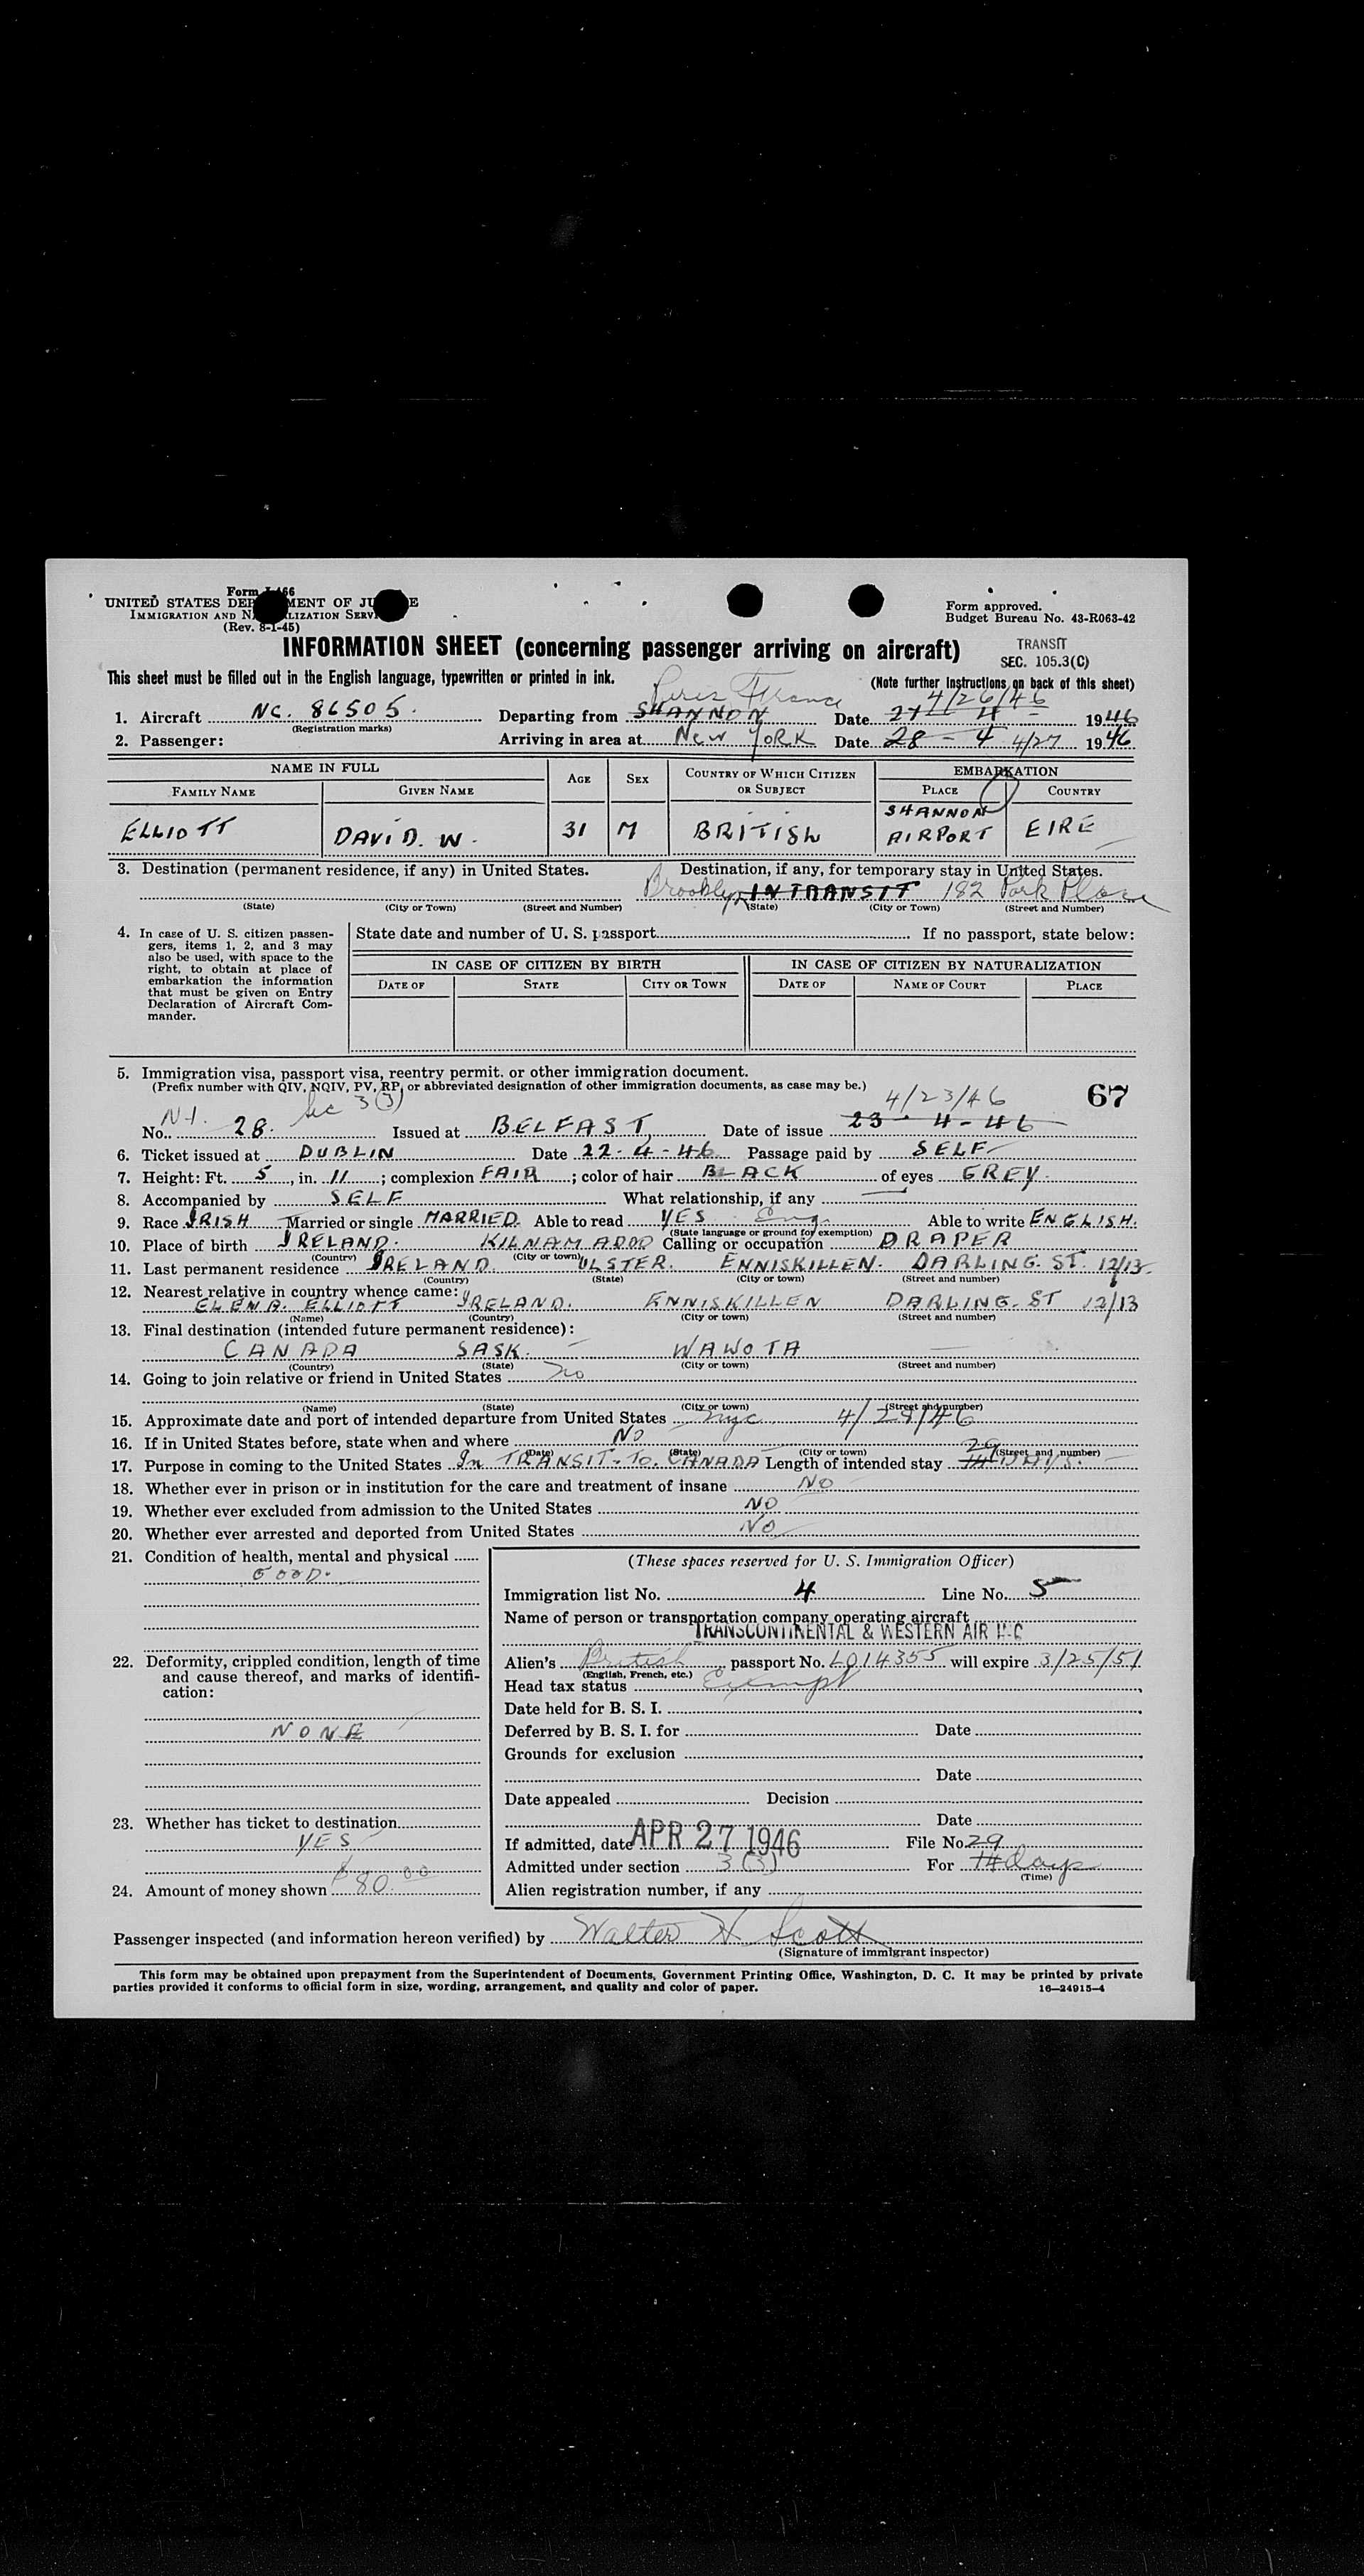 Form I-466
UNITED STATES DEPARTMENT OF JUSTICE
IMMIGRATION AND NATURALIZATION SERVICE
(Rev. 8-1-45)
Form approved.
Budget Bureau No. 43-R063-42
INFORMATION SHEET (concerning passenger arriving on aircraft)
TRANSIT
SEC. 105.3(C)
This sheet must be filled out in the English language, typewritten or printed in ink.
(Note further instructions on back of this sheet)
Paris France 4/26/46
1. Aircraft NC. 86505. Departing from SHANNON Date 27 4 1946
(Registration marks)
2. Passenger: Arriving in area at New York Date 28-4 4/27 1946
NAME IN FULL AGE SEX COUNTRY OF WHICH CITIZEN OR SUBJECT EMBARKATION
FAMILY NAME GIVEN NAME PLACE COUNTRY
ELLIOTT DAVID. W. 31 M BRITISH SHANNON AIRPORT EIRE
3. Destination (permanent residence, if any) in United States. Destination, if any, for temporary stay in United States.
Brooklyn IN TRANSIT 182 Park Place
(State) (City or Town) (Street and Number) (State) (City or Town) (Street and Number)
4. In case of U. S. citizen passengers, items 1, 2, and 3 may also be used, with space to the right, to obtain at place of embarkation the information that must be given on Entry Declaration of Aircraft Commander.
State date and number of U. S. passport If no passport, state below:
IN CASE OF CITIZEN BY BIRTH IN CASE OF CITIZEN BY NATURALIZATION
DATE OF STATE CITY OR TOWN DATE OF NAME OF COURT PLACE
5. Immigration visa, passport visa, reentry permit, or other immigration document.
(Prefix number with QIV, NQIV, PV, RP, or abbreviated designation of other immigration documents, as case may be.)
67
N-1. Sec 3(3) 4/23/46
No. 28. Issued at BELFAST Date of issue 23-4-46
6. Ticket issued at DUBLIN Date 22-4-46 Passage paid by SELF
7. Height: Ft. 5, in. 11; complexion FAIR; color of hair BLACK of eyes GREY.
8. Accompanied by SELF What relationship, if any
9. Race IRISH Married or single MARRIED. Able to read YES Eng. Able to write ENGLISH.
(State language or ground for exemption)
10. Place of birth IRELAND. KILNAMADDO Calling or occupation DRAPER
(Country) (City or town)
11. Last permanent residence IRELAND. ULSTER. ENNISKILLEN. DARLING. ST. 12/13.
(Country) (State) (City or town) (Street and number)
12. Nearest relative in country whence came:
ELENA. ELLIOTT IRELAND. ENNISKILLEN DARLING. ST 12/13
(Name) (Country) (City or town) (Street and number)
13. Final destination (intended future permanent residence):
CANADA SASK. WAWOTA
(Country) (State) (City or town) (Street and number)
14. Going to join relative or friend in United States No
(Name) (State) (City or town) (Street and number)
15. Approximate date and port of intended departure from United States nyc 4/29/46
16. If in United States before, state when and where NO
(Date) (State) (City or town) (Street and number)
17. Purpose in coming to the United States In TRANSIT-TO. CANADA Length of intended stay 14 29 DAYS.
18. Whether ever in prison or in institution for the care and treatment of insane NO
19. Whether ever excluded from admission to the United States NO
20. Whether ever arrested and deported from United States NO
21. Condition of health, mental and physical
GOOD.
(These spaces reserved for U. S. Immigration Officer)
Immigration list No. 4 Line No. 5
Name of person or transportation company operating aircraft
TRANSCONTINENTAL & WESTERN AIR INC
22. Deformity, crippled condition, length of time and cause thereof, and marks of identification:
NONE
Alien's British passport No. L014355 will expire 3/25/51
(English, French, etc.)
Head tax status Exempt
Date held for B. S. I.
Deferred by B. S. I. for Date
Grounds for exclusion
Date
Date appealed Decision
Date
23. Whether has ticket to destination
YES
If admitted, date APR 27 1946 File No.
Admitted under section 3(3) For 14 29 days
(Time)
24. Amount of money shown $80.00
Alien registration number, if any
Passenger inspected (and information hereon verified) by Walter H Scott
(Signature of immigrant inspector)
This form may be obtained upon prepayment from the Superintendent of Documents, Government Printing Office, Washington, D. C. It may be printed by private
parties provided it conforms to official form in size, wording, arrangement, and quality and color of paper. 16—24915-4